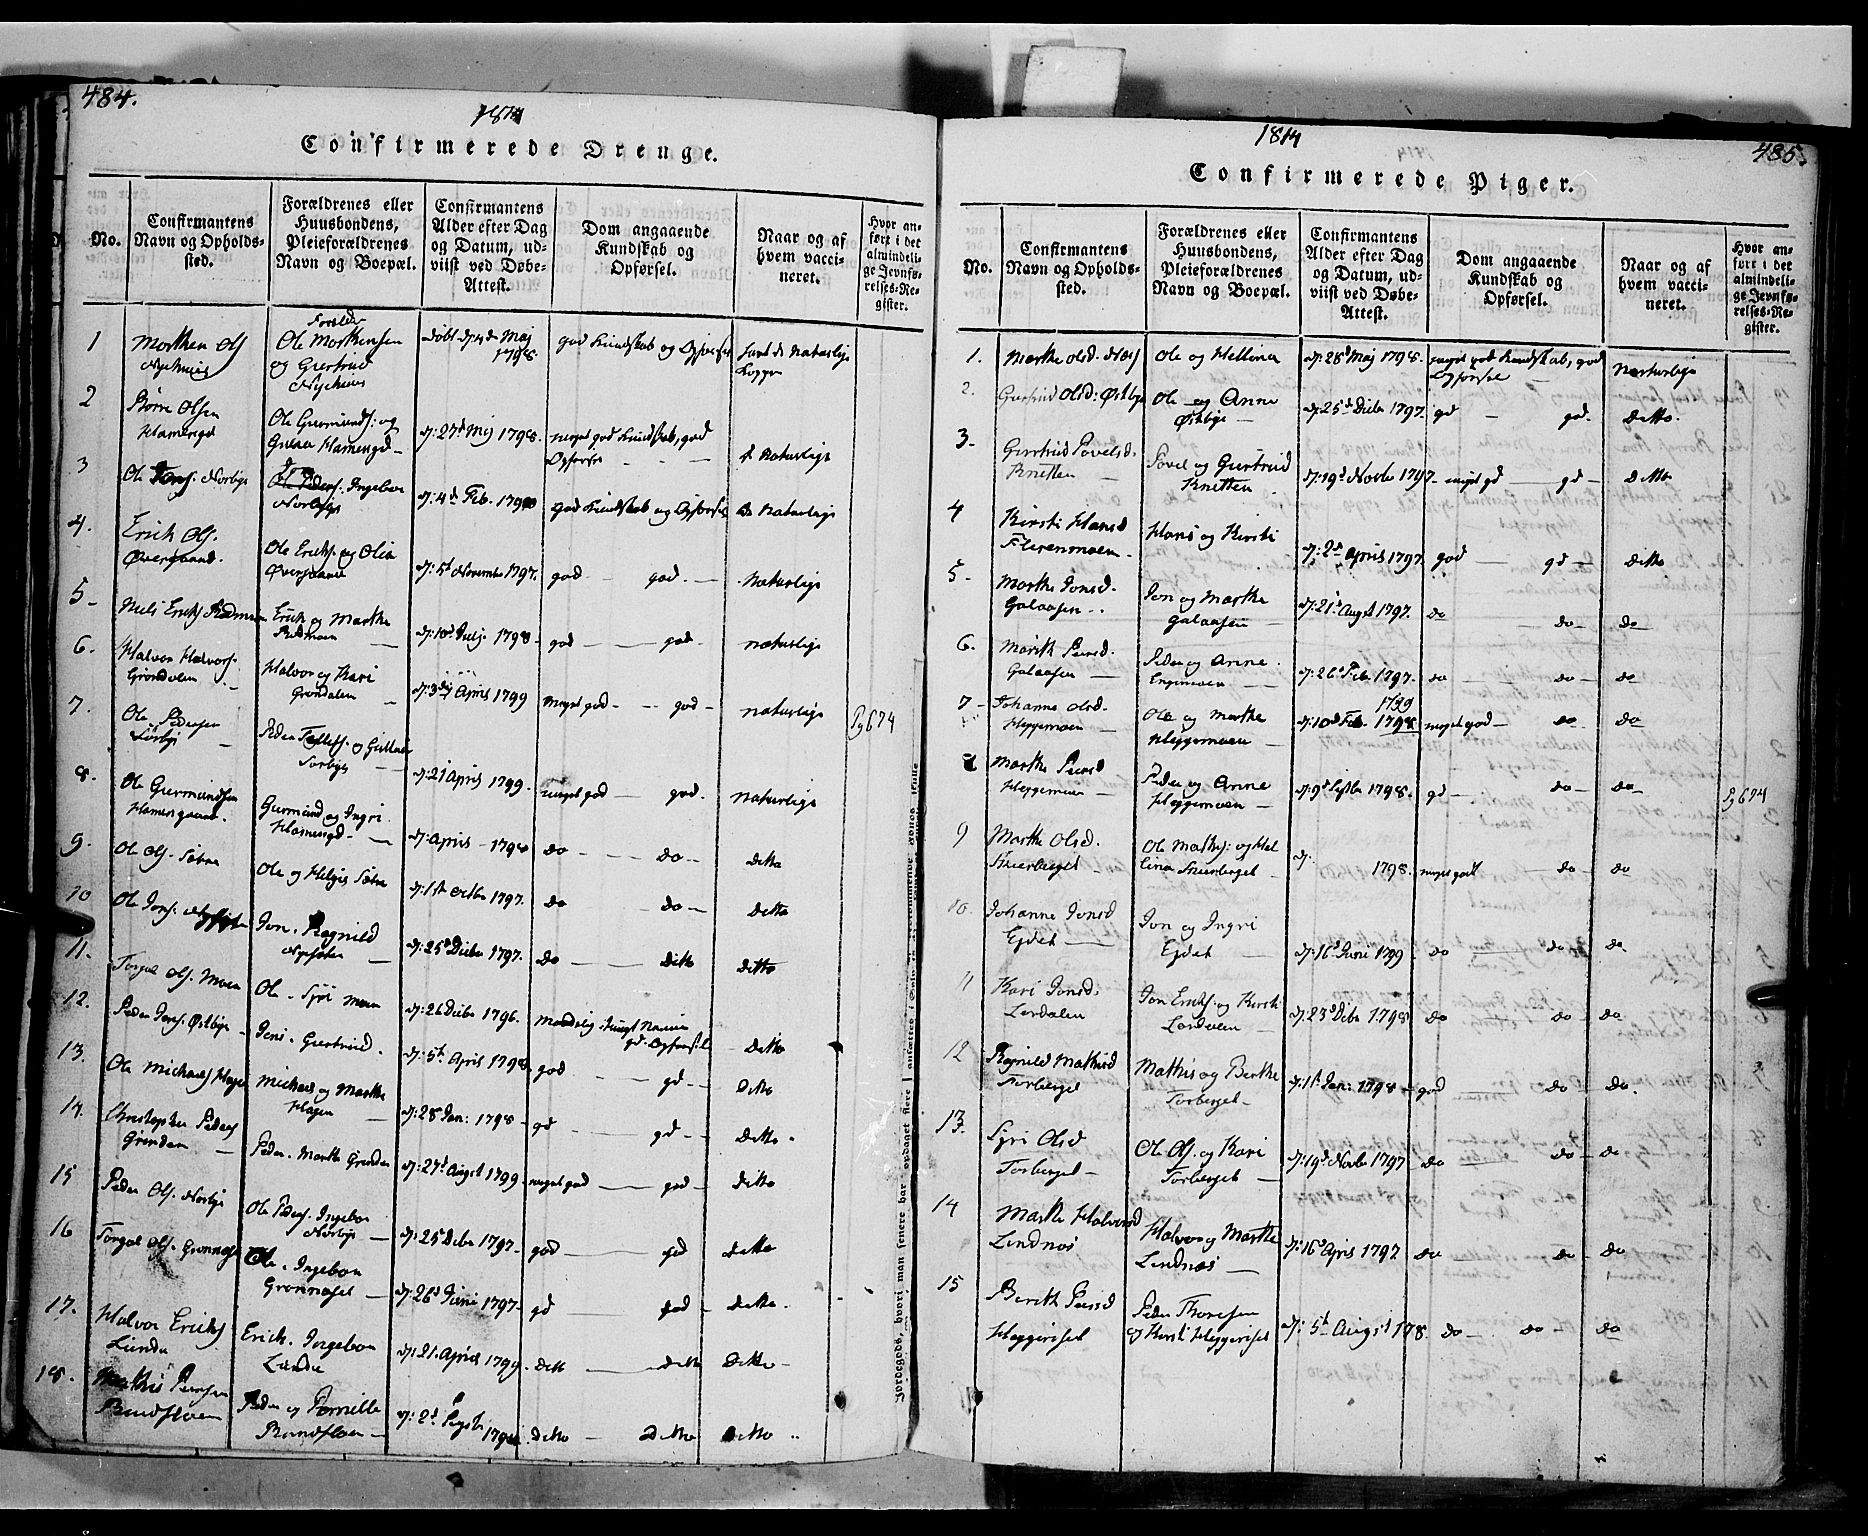 484.
1814
Confirmerede Drenge.
No.
Confirmantens
Navn og Opholds-
sted.
Forældrenes eller
Huusbondens,
Pleieforældrenes
Navn og Boepæl.
Confirmantens
Alder efter Dag
og Datum, ud-
viist ved Døbe-
Attest.
Dom angaaende
Kundskab og
Opførsel.
Naar og af
hvem vacci-
neret.
Hvor an-
ført i det
almindeli-
ge Jevnfø-
relses-Re-
gister.
1
Morthen Ols.
Nyehuus
Forældre
Ole Morthensen
og Giertrud
Nyehuus
Døbt d: 4de Maj
1798
god Kundskab og Opførsel
havt de Naturlige
Kopper
2
Børre Olsen
Hamerqd
Ole Gurmunds: og
d: 27d Maj 1798.
meget god Kundskab, god
Opførsel
d Naturlige
3
Norbye
Ingebor
d: 4d Feb.
god Kundskab og Opførsel
de Naturlige
4.
Erich Ols.
Øvergaard
Ole Erichs. og Olia
Øvergaard
d: 5t November 1797.
god — god —
Naturlige
5
Niels Erichs
Erich og Marthe
d: 10d Julj 1798
god — god
naturlige
6.
Halvor Halvors.
Grøndalen
Halvor og Kari
Grøndalen
April 1799
meget god — god
naturlige
Pg 674
7.
Ole Pedersen
Peder
d: 21 April 1799.
meget god — god.
naturlige
8.
Ole Gurmundsen
Gurmund og Ingri
d: April 1798
do — do
ditto
9.
Ole Ols. Sætre
Ole og Helgie Sætre
d: 1st Octbr 1797.
do — do
Ditto
10
Ole Jons.
Jon. Ragnild
d: 25d Decbr 1797.
do — ditto
ditto
11.
Torgal Ols. Moen
Ole. Syri Moen
d: 26 Decbr 1796.
Ditto
12.
Peder Jens. Østbye
Jens. Giertrud.
d: 5t April 1798
god — gd
Ditto
13.
Ole Michaels Hagen
Michael og Marthe
Hagen
d: 28 Jan: 1798
gd — gd
Ditto
14.
Christopher Peders
Grønden
Peder. Marthe Grønden
d: 27d Augst 1799
meget god — god
Ditto
15
Peder Ols. Norbye
Ole Peders. Ingebor
Norbye
d: 25 Debr 1797
god — god
Ditto
16
Torgal Ols. Grønnæset
Ole. Ingebor
Grønnæset
d: 26d Juni 1797
gd — god
Ditto
17.
Halvor Erichs
Lunde
Erich. Ingebor
Lunde
d: 21. April 1799
Ditto — ditto
Ditto
18.
Mathis Persen
Rundfloen
Peder og Pernille
Rundfloen
d: 2d
Ditto — Ditto
Ditto
Jordegods, hvori man senere har opdaget flere
485.
1814
Confirmerede Piger.
No.
Confirmantens
Navn og Opholds-
sted.
Forældrenes eller
Huusbondens,
Pleieforældrenes
Navn og Boepæl.
Confirmantens
Alder efter Dag
og Datum, ud-
viist ved Døbe-
Attest.
Dom angaaende
Kundskab og
Opførsel.
Naar og af
hvem vacci-
neret.
Hvor an-
ført i det
almindeli-
ge Jevnfø-
relses-Re-
gister.
1.
Marthe Olsd. Næs
Ole og Hellina
d: 28d Maj 1798.
meget god Kundskab, god
Opførsel
Naturlige
2.
Giertrud Olsd: Østbye
Ole og Anne
Østbye
d: 25d Decbr 1797.
gd — god.
Ditto.
3.
Giertrud Povelsd.
Knetten
Povel og Giertrud
Knetten
d: 19d Novbr 1797
meget gd — gd
Ditto
4
Kirsti Hansd
Flerenmoen
Hans og Kirsti
d: 2d April 1797.
god — gd
Ditto
5
Marthe Jonsd.
Galaasen
Jon og Marthe
Galaasen
d: 21d Augst 1797.
do — do
do
6.
Marith Persd.
Galaasen
Peder og Anne.
Engermoen
d: 26d Feb. 1797.
do — do
do
7
Johanne Olsd.
Heggemoen
Ole og Marthe
Heggemoen
1799
d: 10d Feb. 1798
meget god — do
do
8
Marthe Persd
Heggemoen
Peder og Anne
Heggemoen
d: 9d Septbr 1798.
gd — do
do
Pg 674
9
Marthe Olsd.
Skierberget
Ole Mathis: og Hel
lina Skierberget
d: 1798.
meget godt — do
do
10.
Johanne Jonsd
Ejdet
Jon og Ingri
Ejdet
d: 16d Juni 1799
do — do
do
11
Kari Jonsd.
Lørdalen
Jon Erichs: og Kirsti
Lørdalen
d: 23d Debr 1798
do — do
do
12
Ragnild Mathisd
Torberget
Mathis og Berthe
Torberget
d: 1t Jan: 1798
god — do
do.
13.
Syri Olsd
Torberget
Ole Ols. og Kari
Torberget
d: 19d Novbr 1797
do — do
do
14
Marthe Halvorsd
Lindnæs
Halvor og Marthe
Lindnæs
d: 16d April 1797
do — do
do
15
Berith Persd
Heggeriset
Peder Thoresen
og Kirsti Heggeriset
d: 5t August 178.
do — do
do